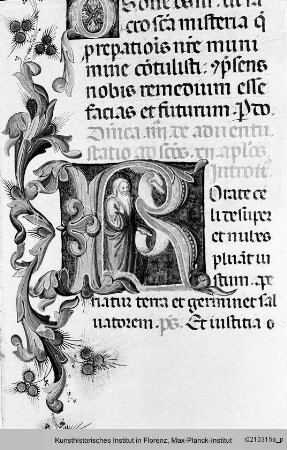 crosca misteria q̃
prepatiõis nr̃e muni
mine cõtulisti: ypsens
nobis remedium esse
facias et futurum. P do
Dñica iiij. de aduentu
statio ad scõs. xij. aplõs
Introit̃
Rorate ce
li desuper
et nubes
pluãt iu
stum. ape
riatur terra et germinet sal
uatorem. Ps. Et iustitia o
Kunsthistorisches Institut in Florenz, Max-Planck-Institut